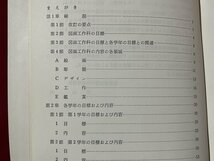 まえがき
第1章 総説
第1節 改訂の要点
第2節 図画工作科の目標
第3節 図画工作科の目標と各学年の目標との関連
第4節 図画工作科の内容の各領域
A 絵画
B 彫塑
C デザイン
D 工作
E 鑑賞
第2章 各学年の目標および内容
第1節 第1学年の目標および内容
1 目標
2 内容
第2節 第2学年の目標および内容
1 目標
2 内容
第3節 第3学年の目標および内容
1 目標
2 内容